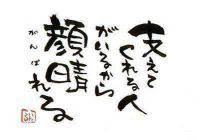 支えて
くれる人
がいるから
顔晴れる
がんば